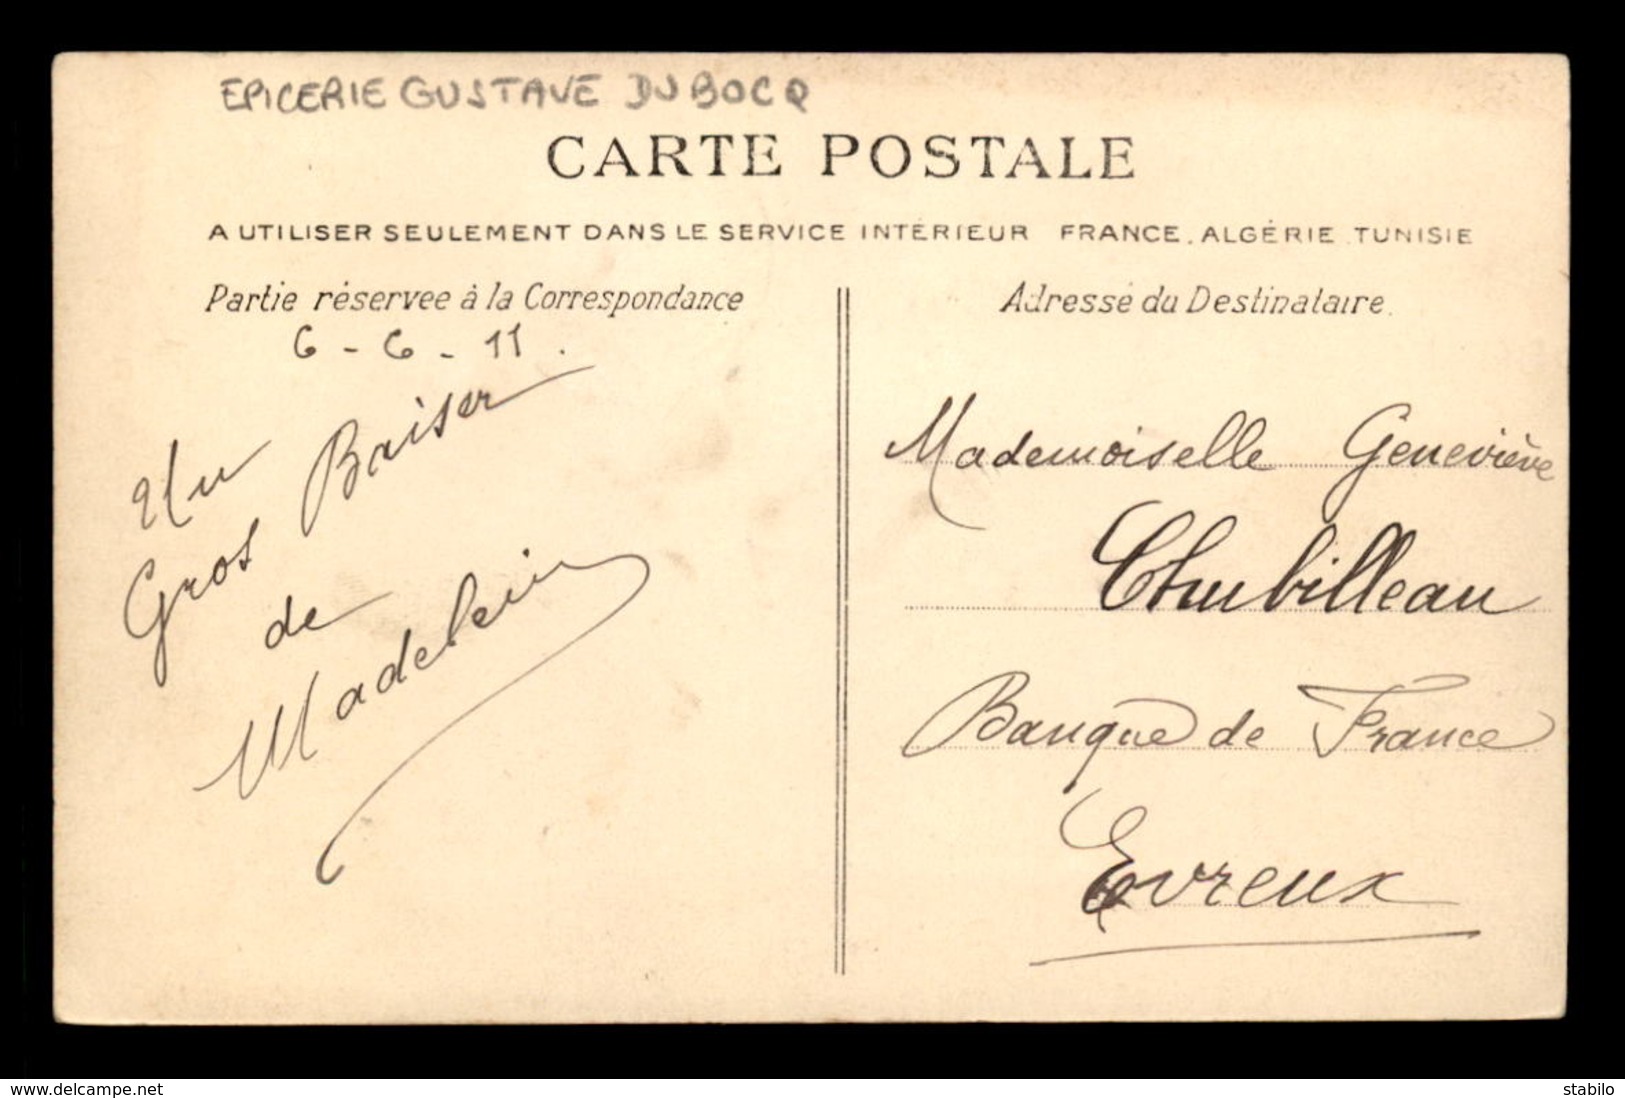 EPICERIE GUSTAVE DUBOCQ
CARTE POSTALE
A UTILISER SEULEMENT DANS LE SERVICE INTÉRIEUR FRANCE, ALGÉRIE TUNISIE
Partie réservée à la Correspondance
6 - 6 - 11.
Un
Gros Baiser
de
Madeleine
Adresse du Destinataire.
Mademoiselle Geneviève
Thubilleau
Banque de France
Evreux
www.delcampe.net
stabilo